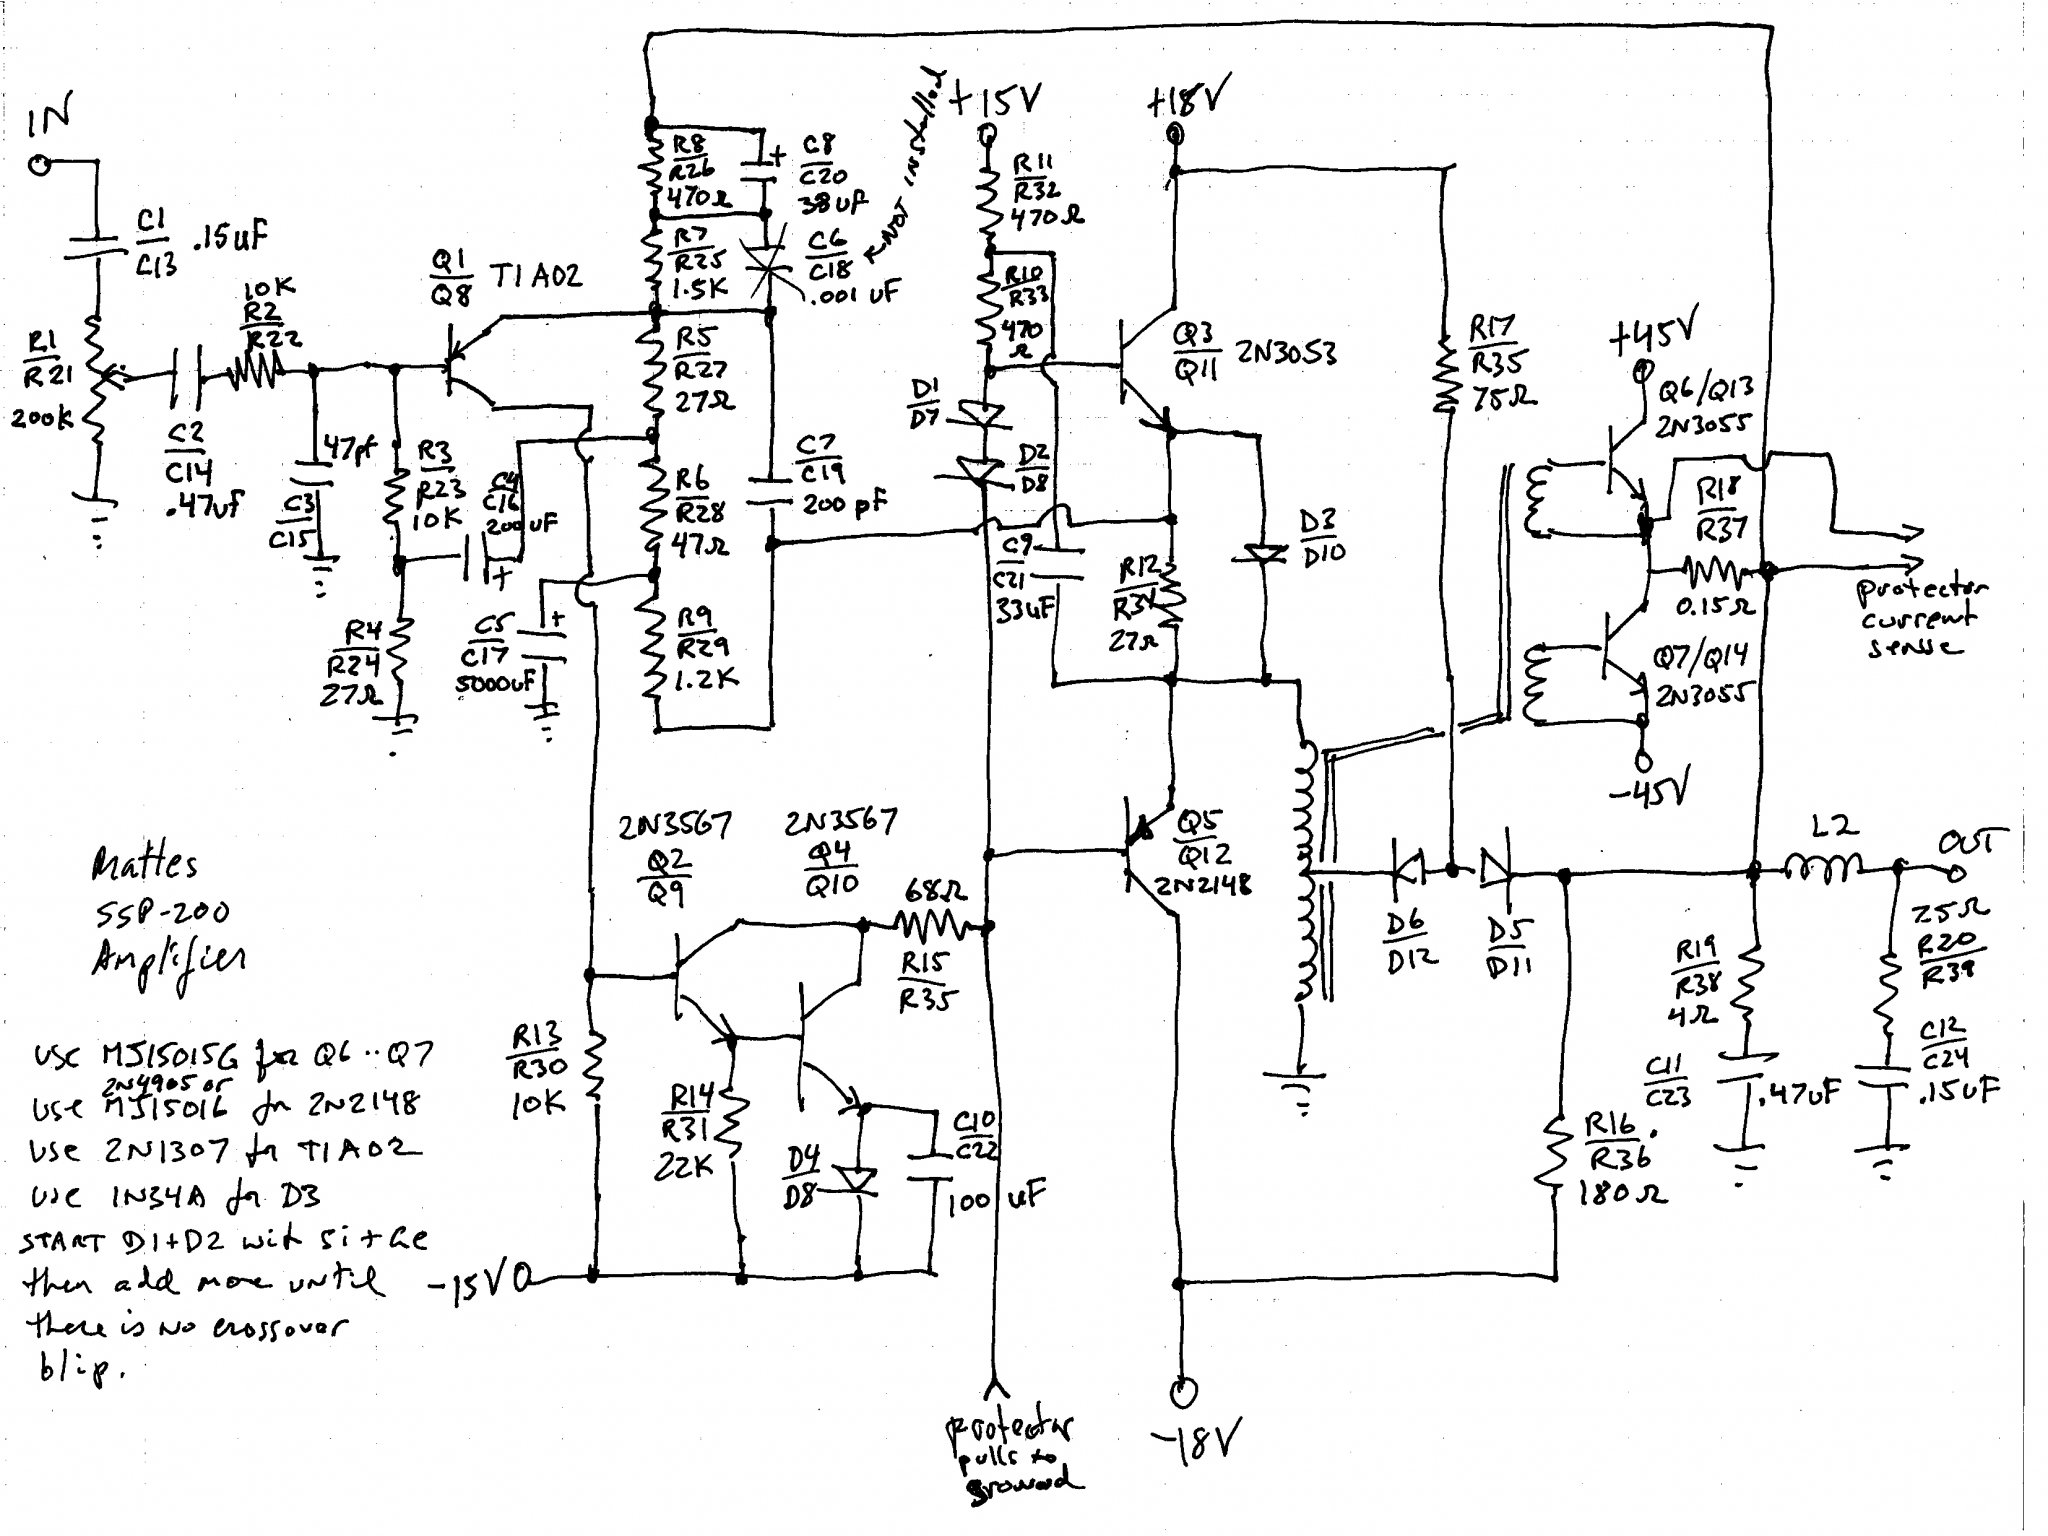 IN
C1
C13
.15uF
R1
R21
200K
C2
C14
.47uf
10K
R2
R22
47pf
C3
C15
Q1
Q8
T1A02
R3
R23
10K
C4
C16
200uF
R4
R24
27Ω
C5
C17
5000uF
+
+
R8
R26
470Ω
+
C8
C20
38uF
R7
R25
1.5K
C6
C18
.001uF
NOT INSTALLED
R5
R27
27Ω
R6
R28
47Ω
C7
C19
200pF
R9
R29
1.2K
+15V
R11
R32
470Ω
R10
R33
470
Ω
D1
D7
D2
D8
C9
C21
33uF
+18V
Q3
Q11
2N3053
R12
R34
27Ω
D3
D10
R17
R35
75Ω
+45V
Q6/Q13
2N3055
R18
R37
0.15Ω
protector
current
sense
Q7/Q14
2N3055
-45V
2N3567
Q2
Q9
2N3567
Q4
Q10
68Ω
R15
R35
Q5
Q12
2N2148
D6
D12
D5
D11
L2
OUT
25Ω
R20
R39
R19
R38
4Ω
C11
C23
.47uF
C12
C24
.15uF
R16
R36
180Ω
R13
R30
10K
R14
R31
22K
D4
D8
C10
C22
100uF
-15V
-18V
protector
pulls to
ground
Mattes
SSP-200
Amplifier
USE MJ15015G for Q6..Q7
2N4905 or
USE MJ15016 for 2N2148
USE 2N1307 for T1A02
USE 1N34A for D3
START D1+D2 with Si+Ge
then add more until
there is no crossover
blip.